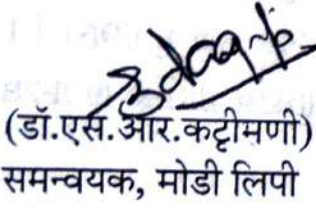 (डॉ.एस.आर.कट्टीमणी)
समन्वयक, मोडी लिपी